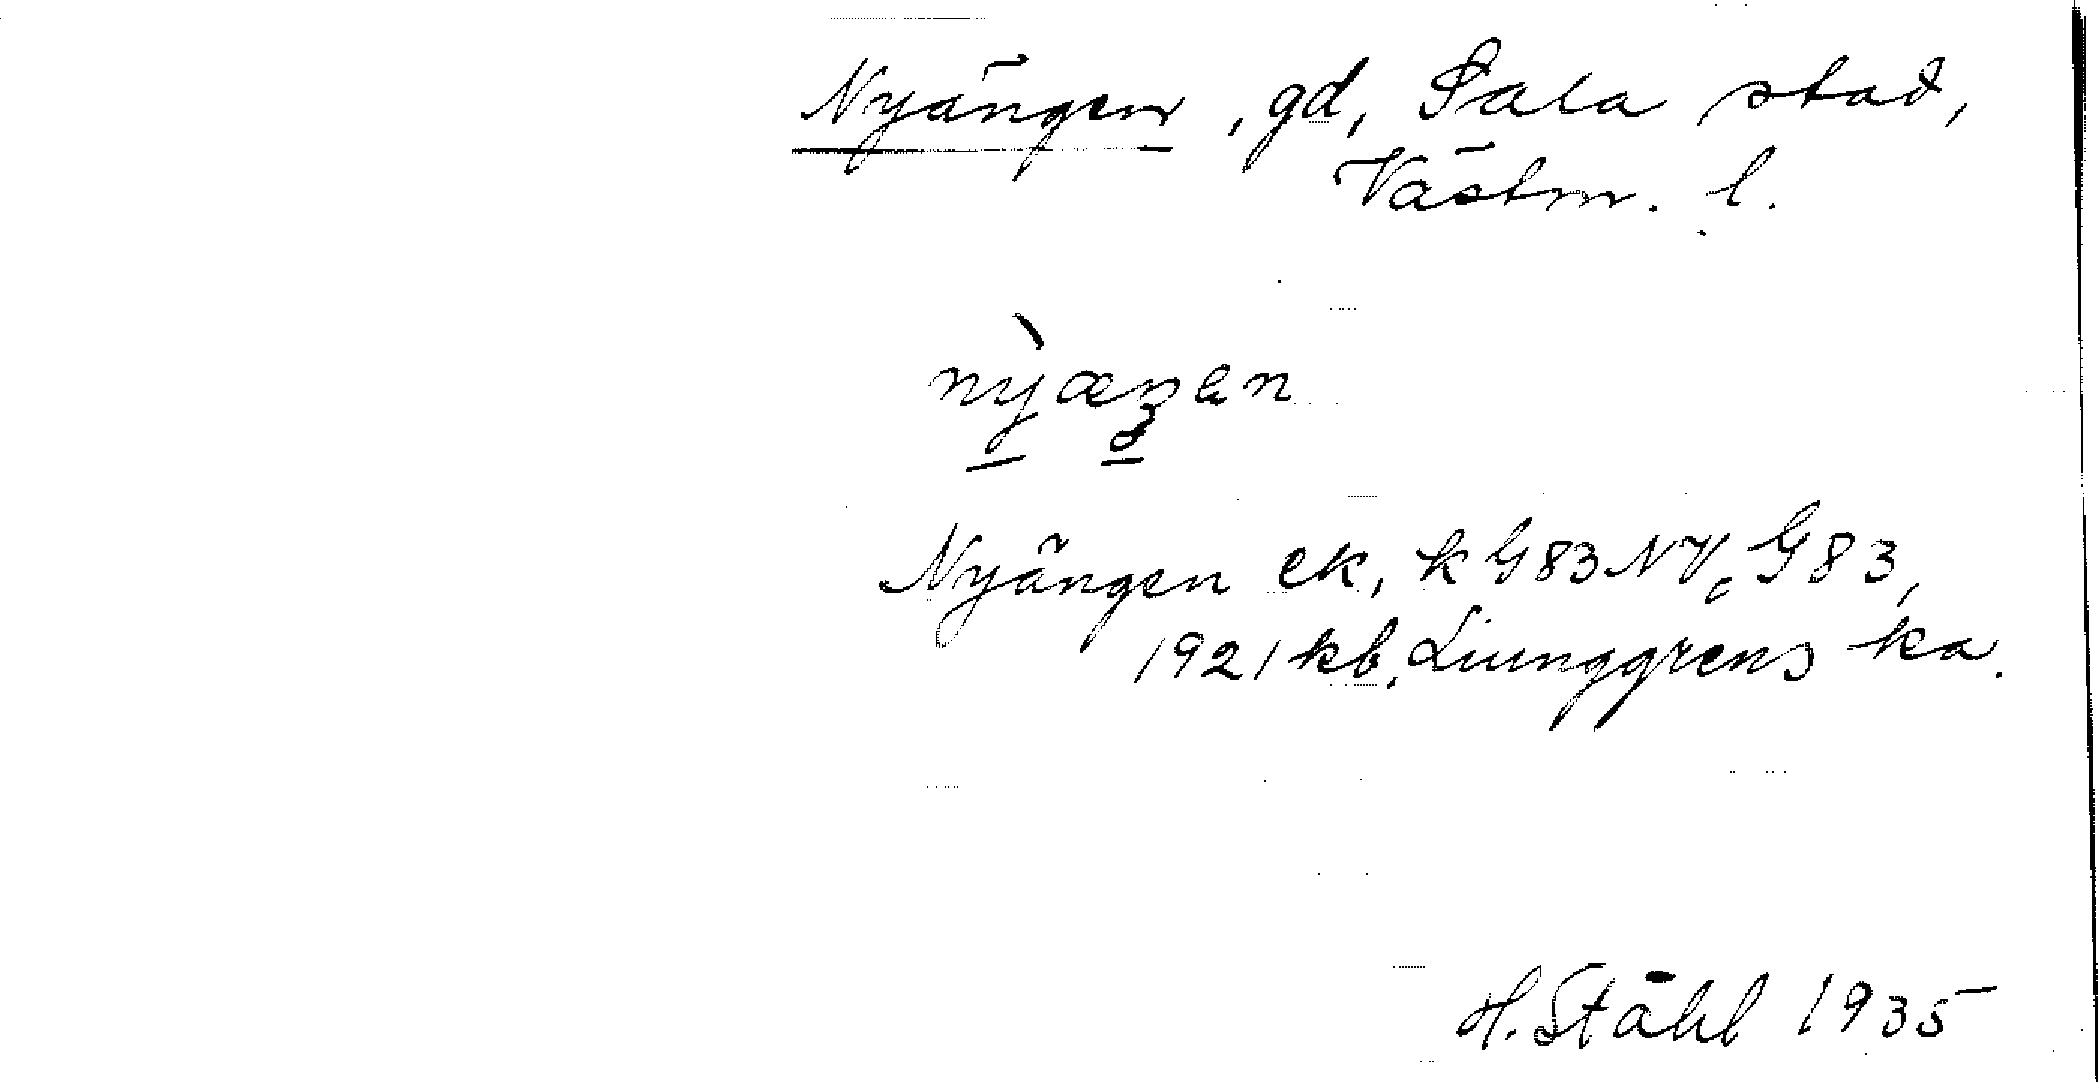 Nyängen, gd, Sala stad,
Västm. l.
nỳæŋən
Nyängen ek, k G83NV, G83,
1921 kb, Ljunggrens ka.
H. Ståhl 1935